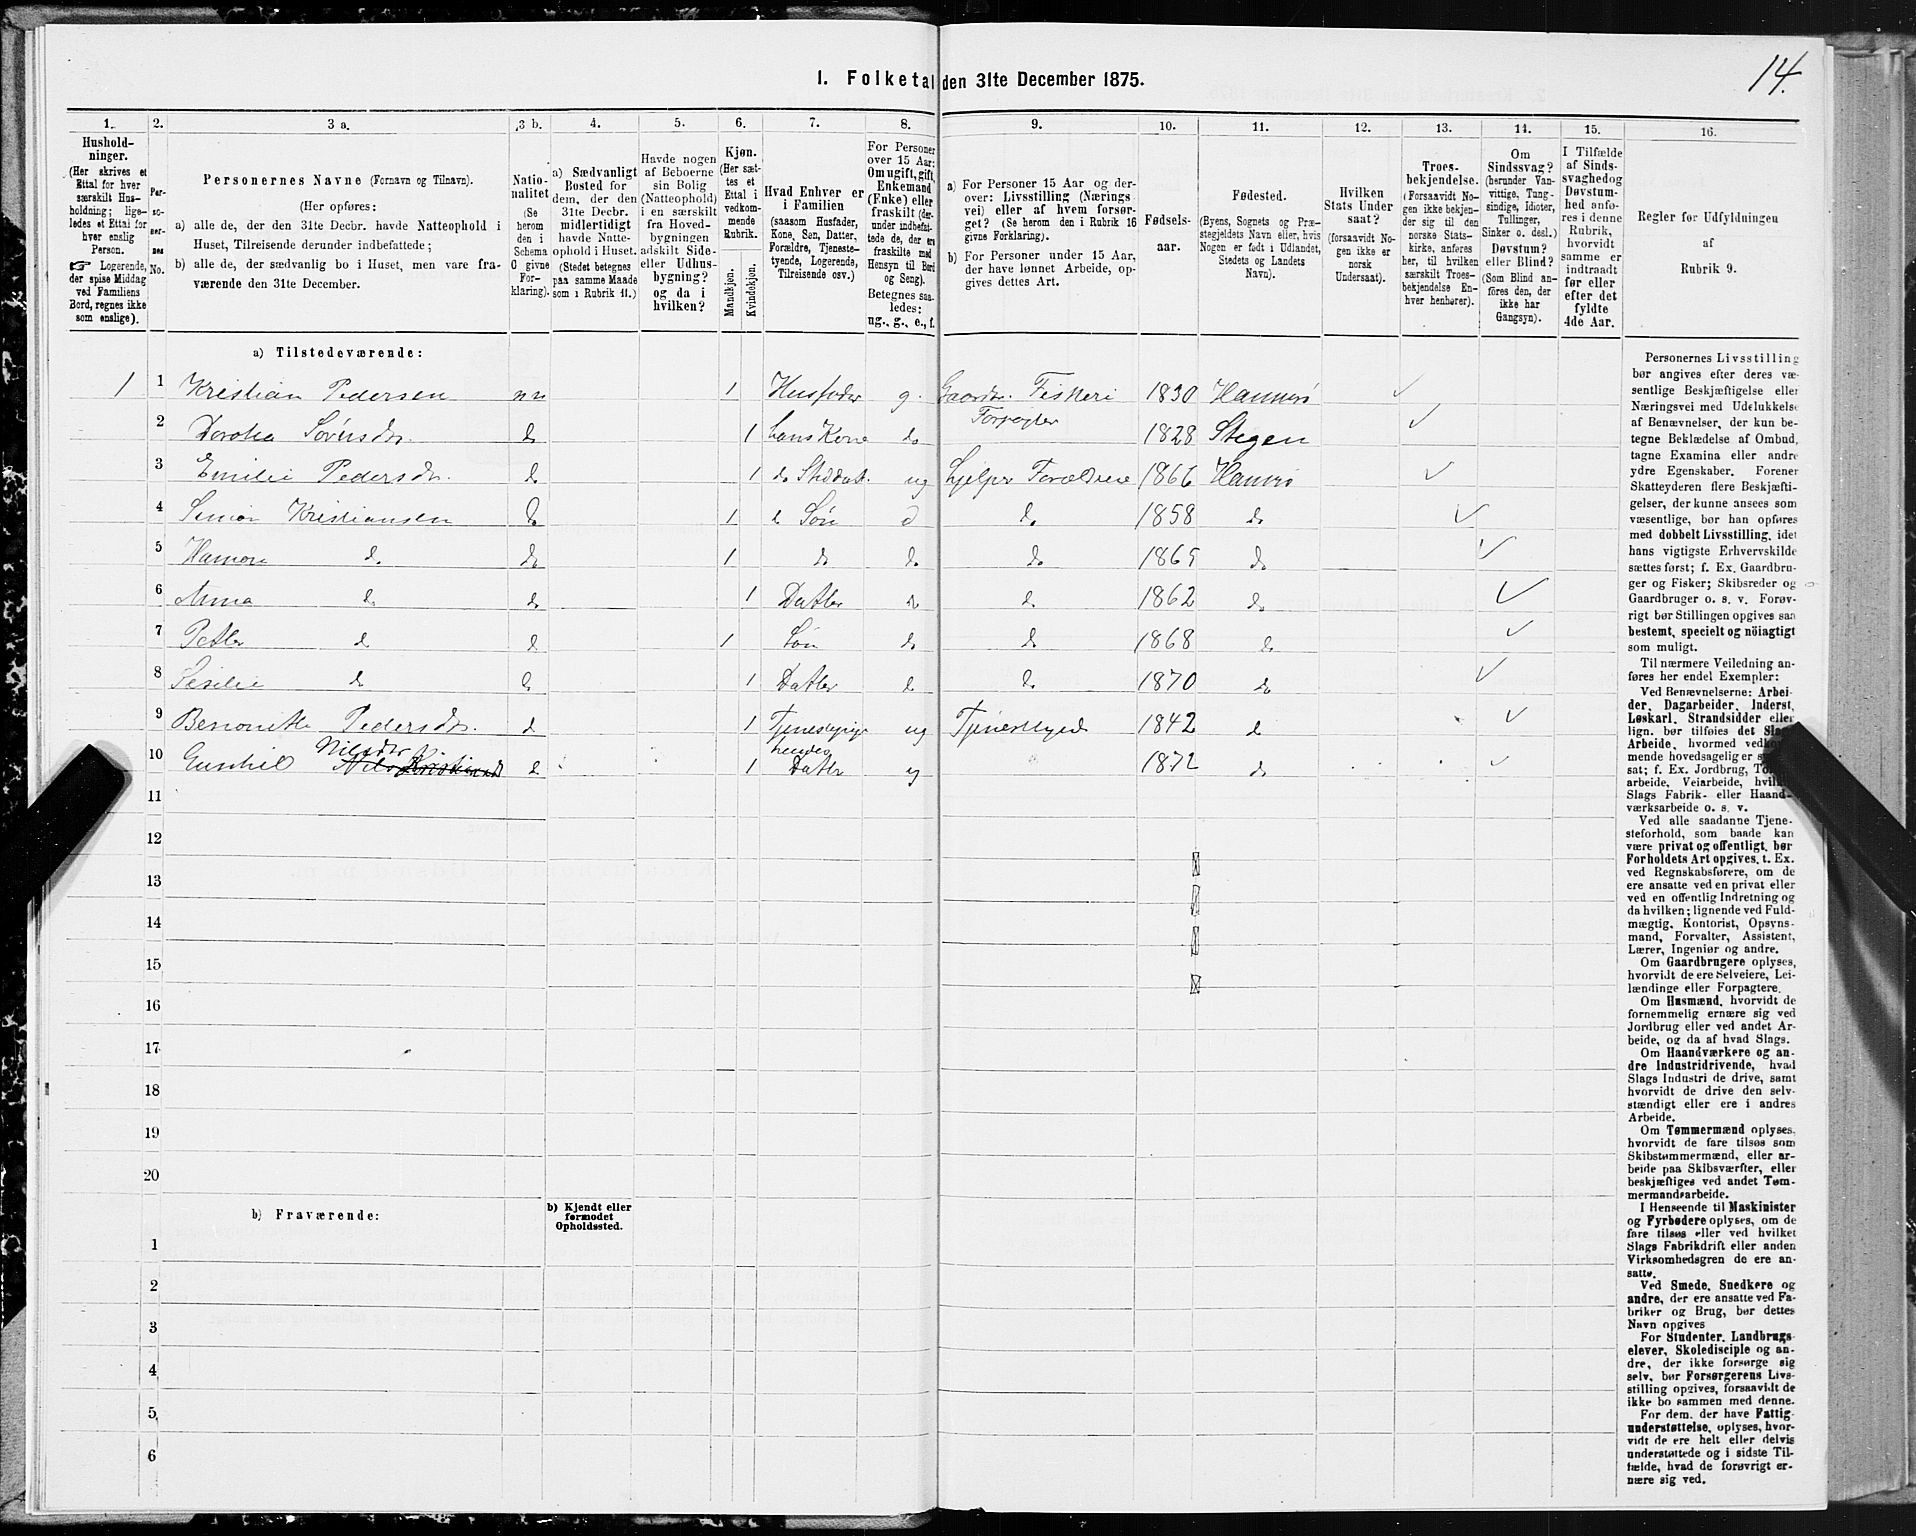 14.
1. Folketal den 31te December 1875.
1. 2. 3 a. 3 b. 4. 5. 6. 7. 8. 9. 10. 11. 12. 13. 14. 15. 16.
Hushold-
ninger.
(Her skrives et
Ettal for hver
særskilt Hus-
holdning; lige-
ledes et Ettal for
hver enslig
Person.
☞ Logerende,
der spise Middag
ved Familiens
Bord, regnes ikke
som enslige).
Per-
so-
ner-
nes
No.
Personernes Navne (Fornavn og Tilnavn).
(Her opføres:
a) alle de, der den 31te Decbr. havde Natteophold i
Huset, Tilreisende derunder indbefattede;
b) alle de, der sædvanlig bo i Huset, men vare fra-
værende den 31te December.
Natio-
nalitet
(Se
herom
den i
Schema
C givne
For-
klaring).
a) Sædvanligt
Bosted for
dem, der den
31te Decbr.
midlertidigt
havde Natte-
ophold i Huset.
(Stedet betegnes
paa samme Maade
som i Rubrik 11.)
Havde nogen
af Beboerne
sin Bolig
(Natteophold)
i en særskilt
fra Hoved-
bygningen
adskilt Side-
eller Udhus-
bygning?
og da i
hvilken?
Kjøn.
(Her sæt-
tes et
Ettal i
vedkom-
mende
Rubrik.
Mandkjøn.
Kvindekjøn.
Hvad Enhver er
i Familien
(saasom Husfader,
Kone, Søn, Datter,
Forældre, Tjeneste-
tyende, Logerende,
Tilreisende osv.)
For Personer
over 15 Aar:
Om ugift, gift,
Enkemand
(Enke) eller
fraskilt (der-
under indbefat-
tede de, der ere
fraskilte med
Hensyn til Bord
og Seng).
Betegnes saa-
ledes:
ug., g., e., f.
a) For Personer 15 Aar og der-
over: Livsstilling (Nærings
vei) eller af hvem forsør-
get? (Se herom den i Rubrik 16
givne Forklaring).
b) For Personer under 15 Aar,
der have lønnet Arbeide, op-
gives dettes Art.
Fødsels-
aar.
Fødested.
(Byens, Sognets og Præ-
stegjeldets Navn eller, hvis
Nogen er født i Udlandet,
Stedets og Landets
Navn).
Hvilken
Stats Under
saat?
(forsaavidt No-
gen ikke er
norsk
Undersaat).
Troes-
bekjendelse.
(Forsaavidt No-
gen ikke bekjen-
der sig til den
norske Stats-
kirke, anføres
her, til hvilken
særskilt Troes-
bekjendelse En-
hver henhører).
Om
Sindssvag?
(herunder Van-
vittige, Tung-
sindige, Idioter,
Tullinger,
Sinker o. desl.)
Døvstum?
eller Blind?
(Som Blind an-
føres den, der
ikke har
Gangsyn).
I Tilfælde
af Sinds-
svaghed og
Døvstum-
hed anfø-
res i denne
Rubrik,
hvorvidt
samme er
indtraadt
før eller
efter det
fyldte
4de Aar.
Regler før Udfyldningen
af
Rubrik 9.
a) Tilstedeværende:
1 1 Kristian Pedersen nn 1 Husfader g. Gaardbr. Fiskeri 1830 Hamerø ✓
Forpagter
2 Dorothea Sørensdr. do 1 hans Kone do 1828 Stegen ✓
3 Emilie Pedersdr. do 1 do Steddat. ug hjelper Forældrene 1866 Hamrø ✓
4 Simon Kristiansen do 1 d Søn d do 1858 do ✓
5 Hamon do do 1 do do do 1865 do ✓
6 Anna do do 1 Datter do do 1862 do ✓
7 Petter do do 1 Søn do do 1868 do ✓
8 Sesilie do do 1 Datter do do 1870 do ✓
9 Benonitte Pedersdr. d 1 Tjenestepige ug Tjenestyed 1842 d ✓
10 Gunhil Nilsdr. d 1 hendes Datter ug 1872 do ✓
11
12
13
14
15
16
17
18
19
20
b) Fraværende:
b) Kjendt eller
formodet
Opholdssted.
1
2
3
4
5
6
Personernes Livsstilling
bør angives efter deres væ-
sentlige Beskjæftigelse eller
Næringsvei med Udelukkelse
af Benævnelser, der kun be-
tegne Beklædelse af Ombud,
tagne Examina eller andre
ydre Egenskaber. Forener
Skatteyderen flere Beskjæfti-
gelser, der kunne ansees som
væsentlige, bør han opføres
med dobbelt Livsstilling, idet
hans vigtigste Erhvervskilde
sættes først; f. Ex. Gaardbru-
ger og Fisker; Skibsreder og
Gaardbruger o. s. v. Forøv-
rigt bør Stillingen opgives saa
bestemt, specielt og nöiagtigt
som muligt.
Til nærmere Veiledning an-
føres her endel Exempler:
Ved Benævnelserne: Arbei-
der, Dagarbeider, Inderst,
Løskarl, Strandsidder eller
lign. bør tilføies det Slags
Arbeide, hvormed vedkom-
mende hovedsagelig er syssel-
sat; f. Ex. Jordbrug, Tomt-
arbeide, Veiarbeide, hvilket
Slags Fabrik- eller Haand-
værksarbeide o. s. v.
Ved alle saadanne Tjene-
steforhold, som baade kan
være privat og offentligt, bør
Forholdets Art opgives, t. Ex.
ved Regnskabsførere, om de
ere ansatte ved en privat eller
ved en offentlig Indretning og
da hvilken; lignende ved Fuld-
mægtig, Kontorist, Opsyns-
mand, Forvalter, Assistent,
Lærer, Ingeniør og andre.
Om Gaardbrugere oplyses,
hvorvidt de ere Selveiere, Lei-
lændinge eller Forpagtere.
Om Husmænd, hvorvidt de
fornemmelig ernære sig ved
Jordbrug eller ved andet Ar-
beide, og da af hvad Slags.
Om Haandværkere og an-
dre Industridrivende, hvad
Slags Industri de drive, samt
hvorvidt de drive den selv-
stændigt eller ere i andres
Arbeide.
Om Tømmermænd oplyses,
hvorvidt de fare tilsøs som
Skibstømmermænd, eller ar-
beide paa Skibsværfter, eller
beskjæftiges ved andet Tøm-
mermandsarbeide.
I Henseende til Maskinister
og Fyrbødere oplyses, om de
fare tilsøs eller ved hvilket
Slags Fabrikdrift eller anden
Virksomhedsgren de ere an-
satte.
Ved Smede, Snedkere og
andre, der ere ansatte ved Fa-
briker og Brug, bør dettes
Navn opgives
For Studenter, Landbrugs-
elever, Skoledisciple og an-
dre, der ikke forsørge sig
selv, bør Forsørgerens Livs-
stilling opgives, forsaavidt de
ikke bo sammen med denne.
For dem, der have Fattig-
understøttelse, oplyses, hvor-
vidt de ere helt eller delvis
understøttede og i sidste Til-
fælde, hvad de forøvrigt er-
nære sig ved.